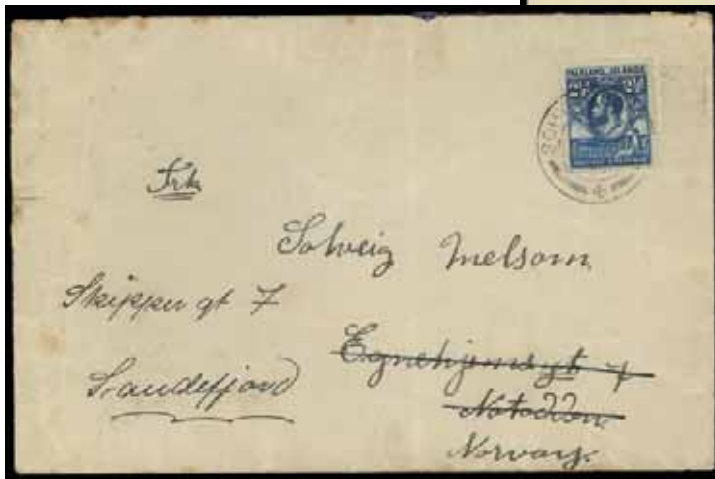 FALKLAND ISLANDS
2½ 2½
SOUTH
Frk
Solveig Melsom
Skipper gt 7
Sandefjord
Egnehjemsgt 7
Notodden
Norvay.